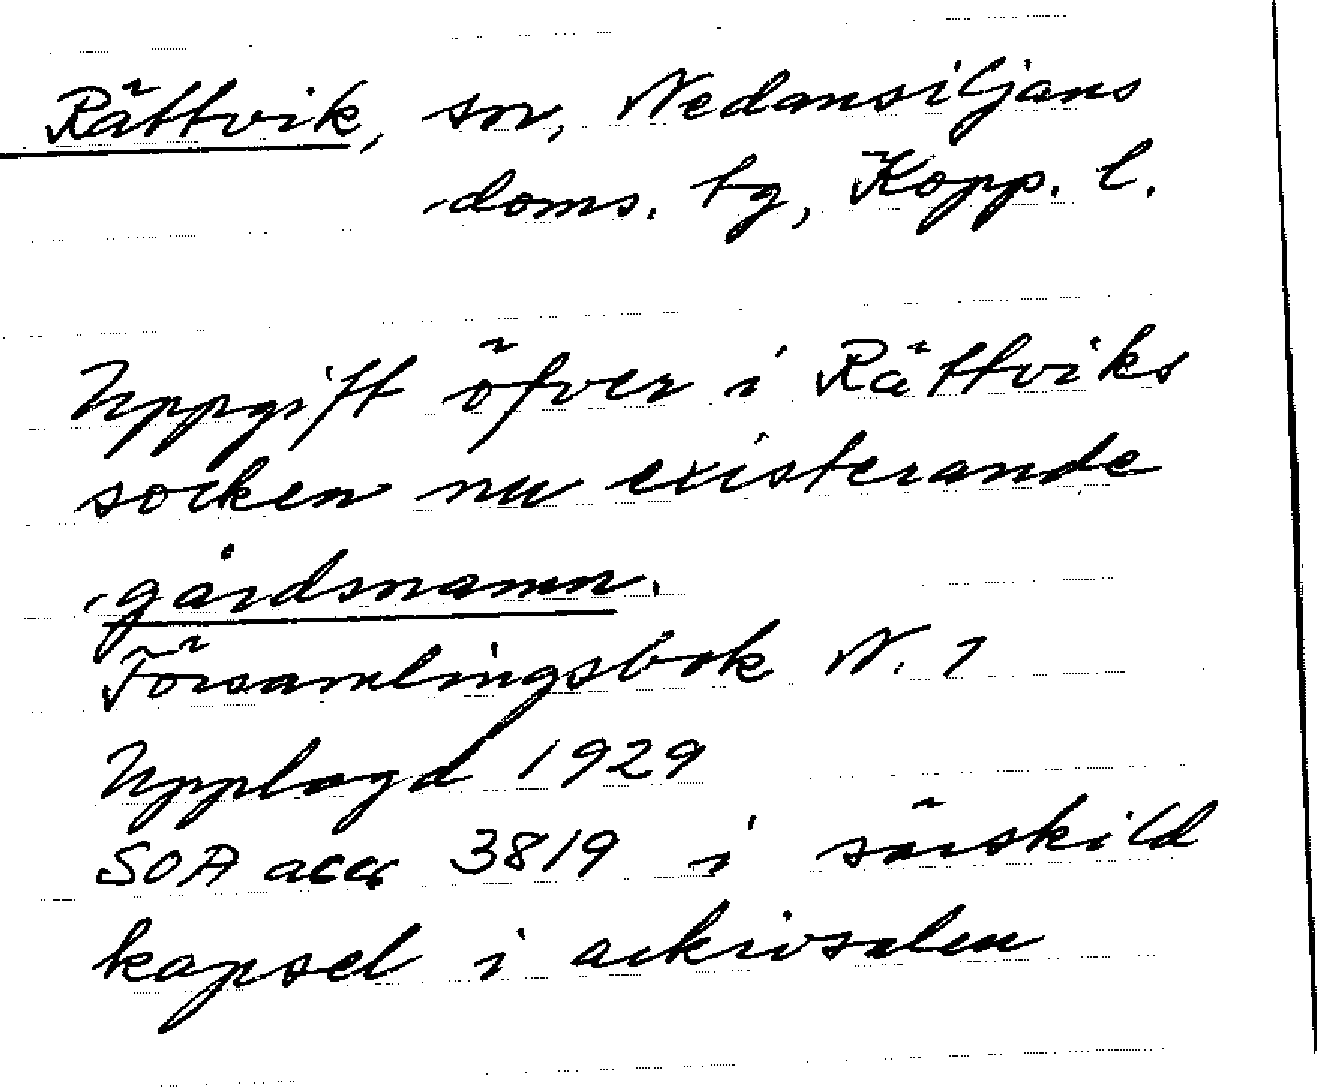 Rättvik, sn, Nedansiljans
doms. tg, Kopp. l.
Uppgift öfver i Rättviks
socken nu existerande
gårdsnamn.
Församlingsbok N. 1
Upplagd 1929
SOA acc 3819 i särskild
kapsel i arkivsalen